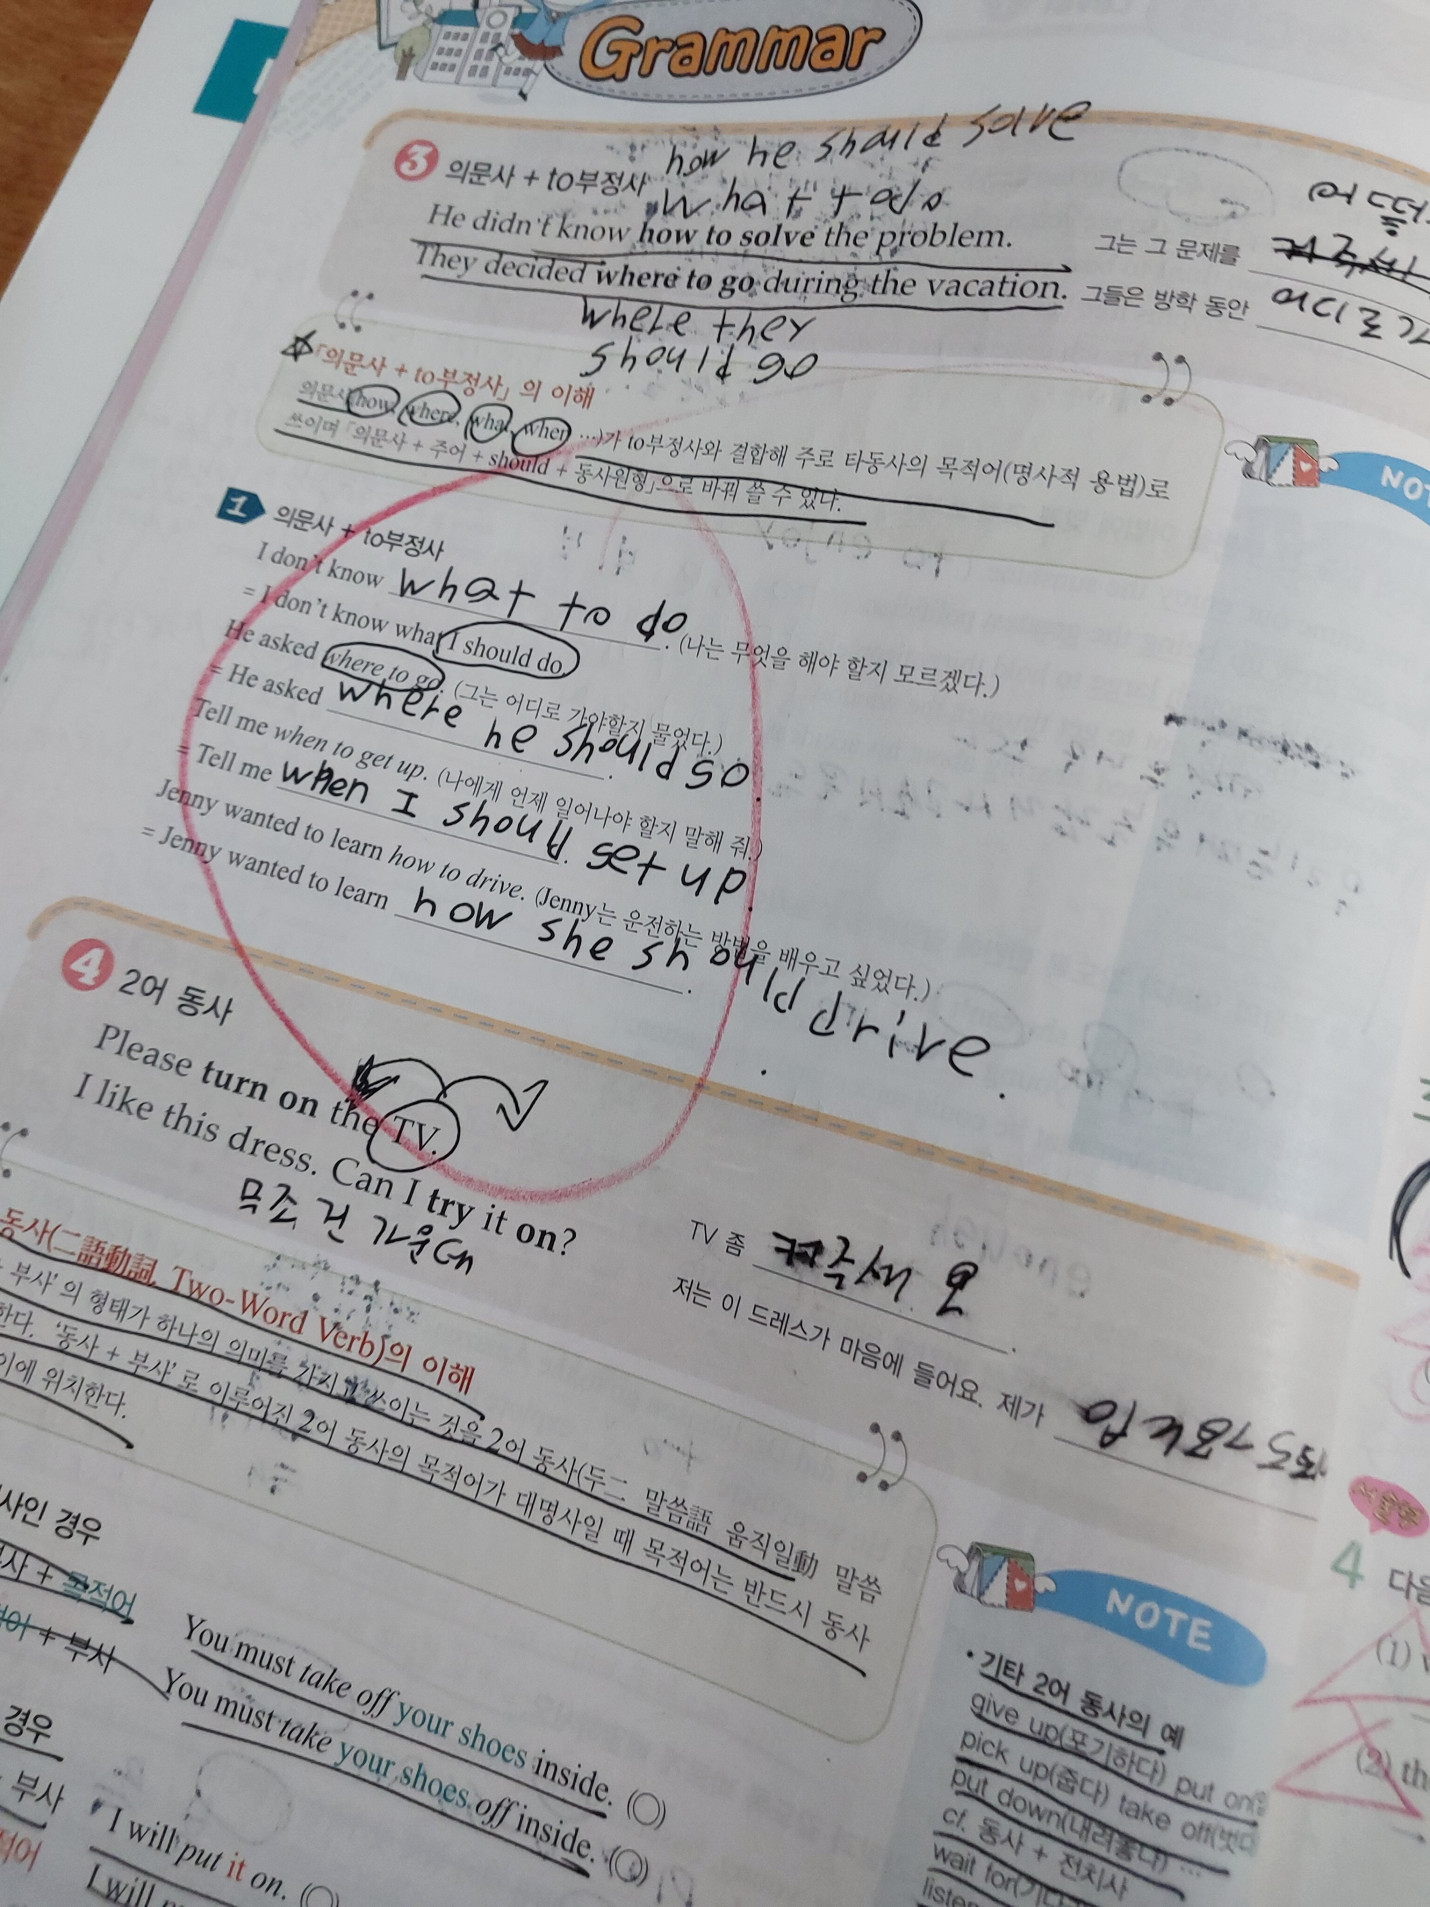 Grammar
how he should solve
3 의문사 + to부정사
what to do
He didn't know how to solve the problem. 그는 그 문제를
They decided where to go during the vacation. 그들은 방학 동안 어디로
where they
should go
「의문사 + to부정사」의 이해
의문사(how, where, what, when ...)가 to부정사와 결합해 주로 타동사의 목적어(명사적 용법)로
쓰이며 「의문사 + 주어 + should + 동사원형」으로 바꿔 쓸 수 있다.
1 의문사 + to부정사
I don't know what to do. (나는 무엇을 해야 할지 모르겠다.)
= I don't know what I should do.
He asked where to go. (그는 어디로 가야할지 물었다.)
= He asked where he should go.
Tell me when to get up. (나에게 언제 일어나야 할지 말해 줘.)
= Tell me when I should get up.
Jenny wanted to learn how to drive. (Jenny는 운전하는 방법을 배우고 싶었다.)
= Jenny wanted to learn how she should drive.
4 2어 동사
Please turn on the TV. TV 좀 켜주세요.
I like this dress. Can I try it on? 저는 이 드레스가 마음에 들어요. 제가
무조건 가운데
동사(二語動詞, Two-Word Verb)의 이해
부사'의 형태가 하나의 의미를 가지고 쓰이는 것을 2어 동사(두二 말씀語 움직일動) 말씀
한다. '동사 + 부사'로 이루어진 2어 동사의 목적어가 대명사일 때 목적어는 반드시 동사
이에 위치한다.
사인 경우
사 + 목적어
적어 + 부사
You must take off your shoes inside. (○)
You must take your shoes off inside. (○)
경우
부사
적어
I will put it on. (○)
I will
NOTE
• 기타 2어 동사의 예
give up(포기하다) put on(
pick up(줍다) take off(벗다
put down(내려놓다) ...
cf. 동사 + 전치사
wait for(기다
listen
서술형
4 다음
(1)
(2) th